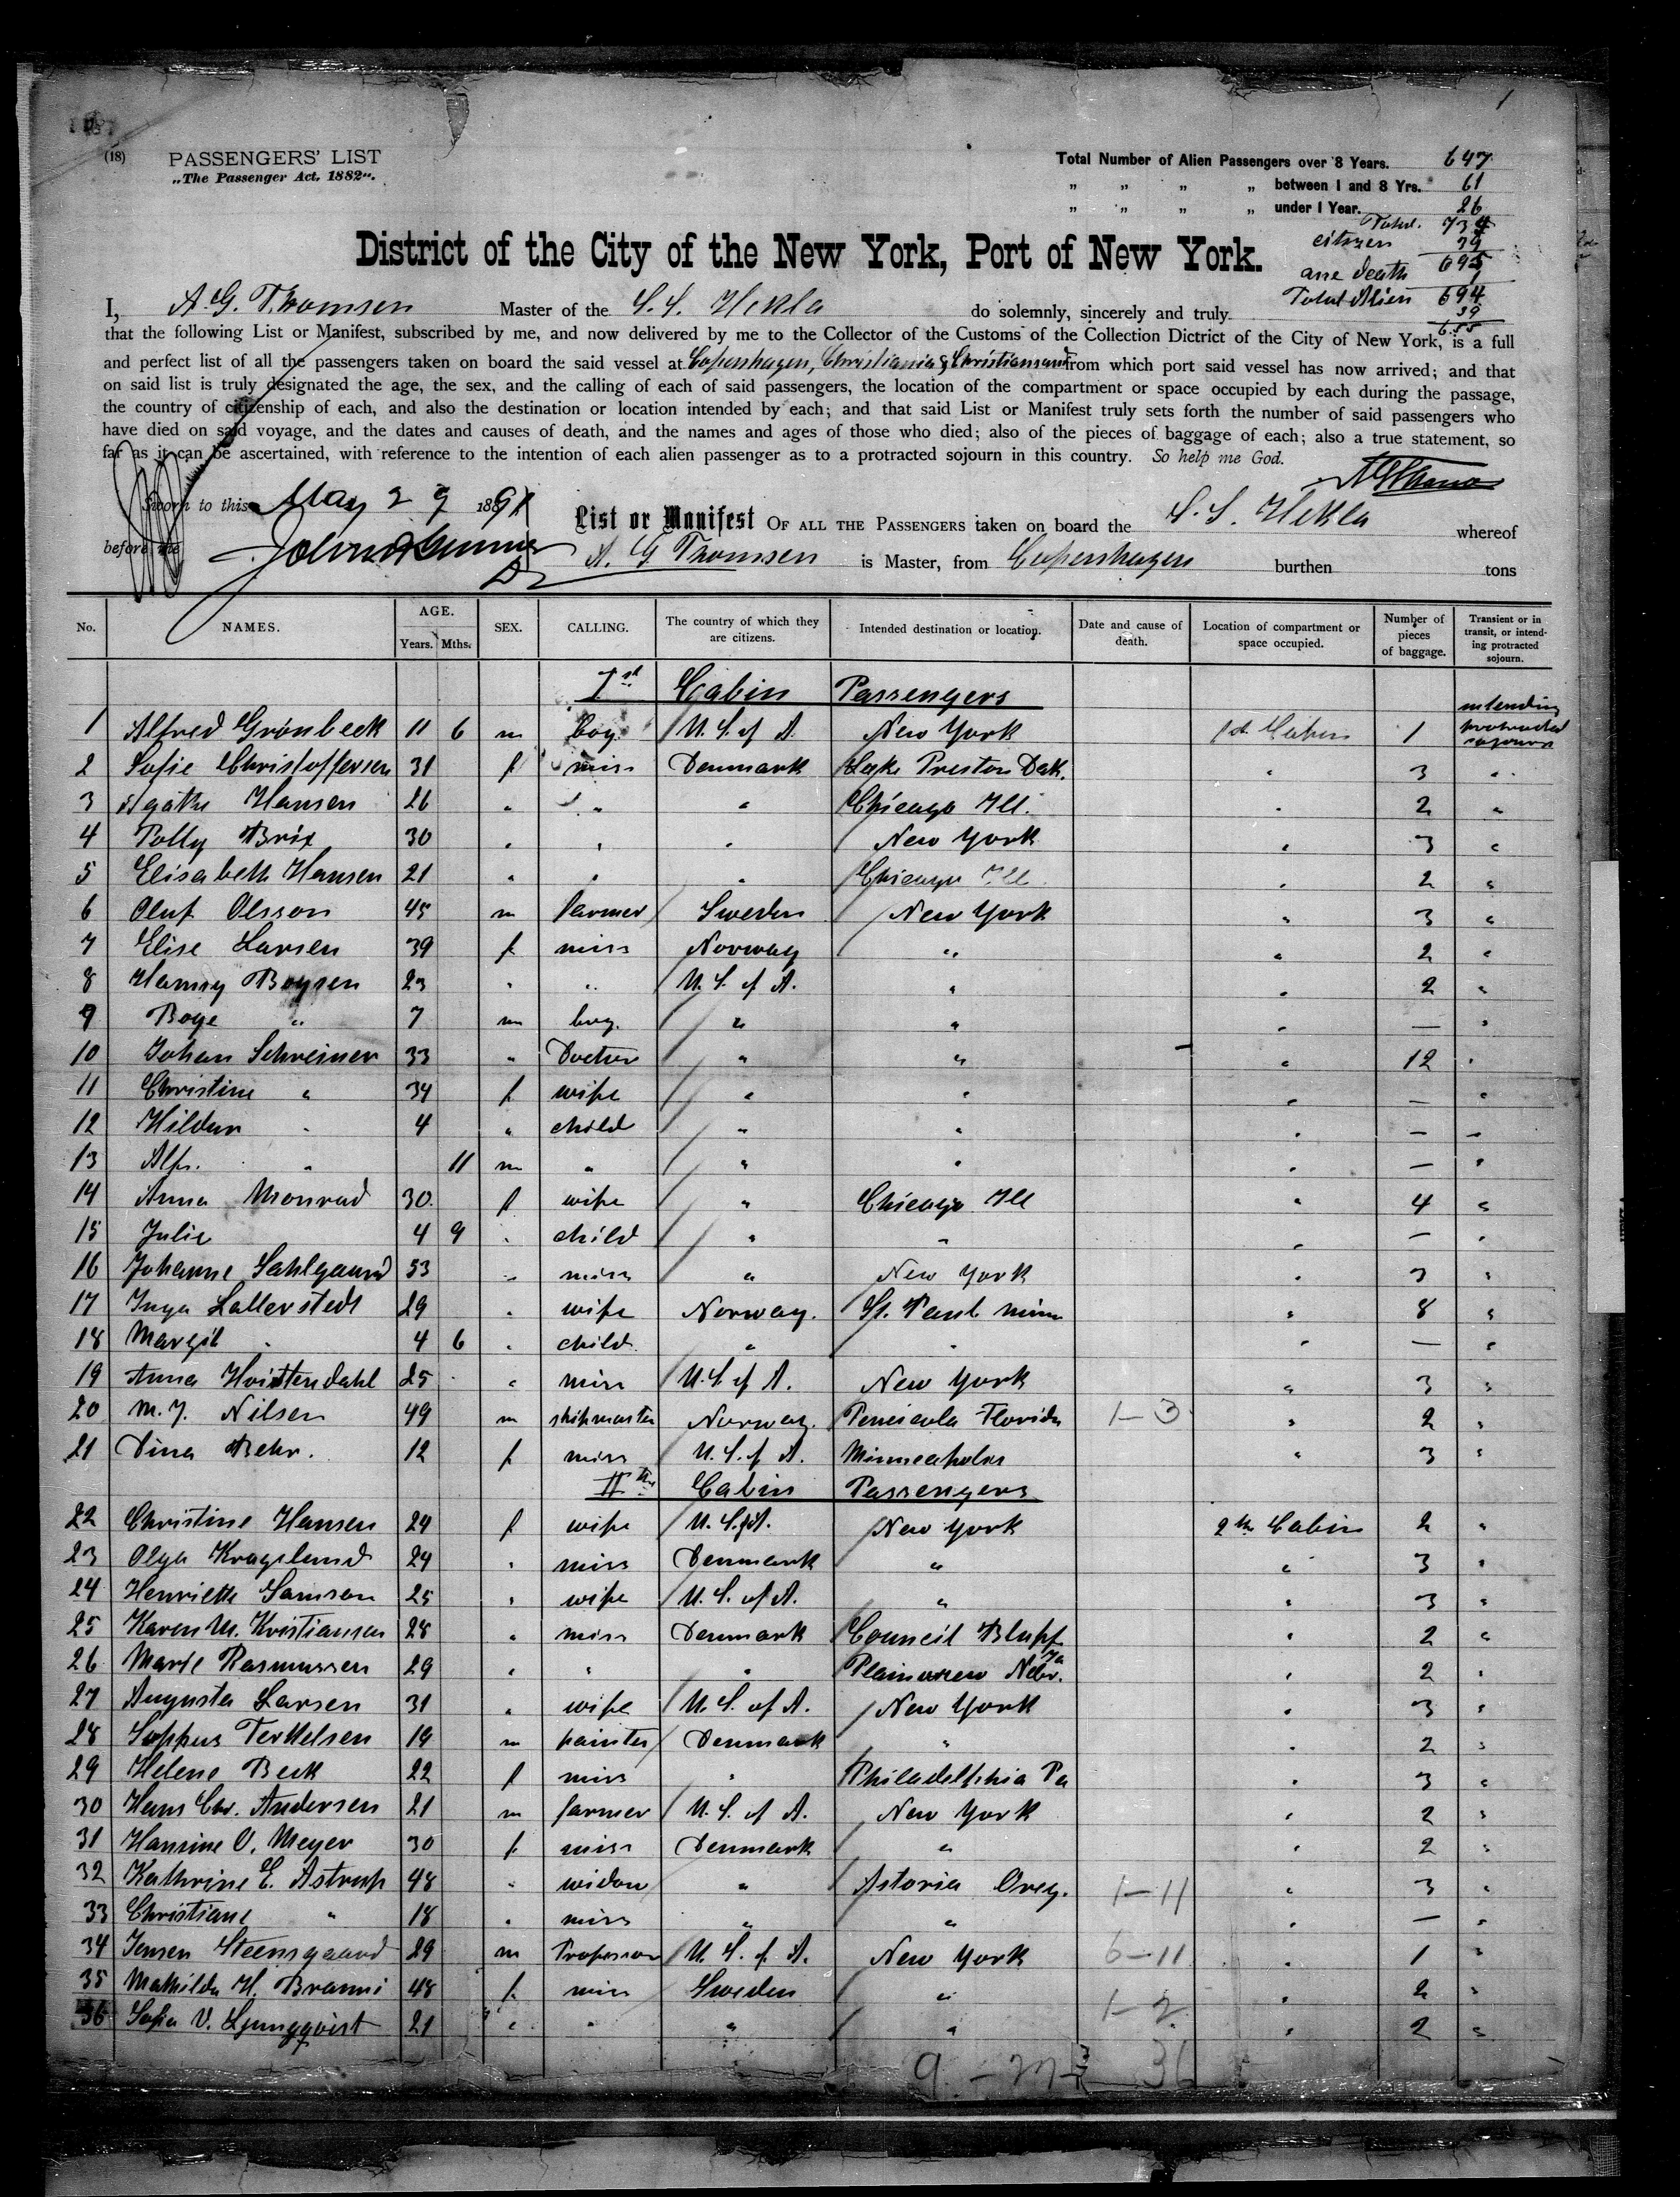 1
(18)
PASSENGERS' LIST
„The Passenger Act, 1882“.
Total Number of Alien Passengers over 8 Years. 647
„ „ „ „ between 1 and 8 Yrs. 61
„ „ „ „ under 1 Year. 26
Total. 734
citizen 39
695
one death 1
Total Alien 694
39
655
District of the City of the New York, Port of New York.
I, A. G. Thomsen Master of the S. S. Hekla do solemnly, sincerely and truly
that the following List or Manifest, subscribed by me, and now delivered by me to the Collector of the Customs of the Collection District of the City of New York, is a full
and perfect list of all the passengers taken on board the said vessel at Copenhagen, Christiania & Christiansand from which port said vessel has now arrived; and that
on said list is truly designated the age, the sex, and the calling of each of said passengers, the location of the compartment or space occupied by each during the passage,
the country of citizenship of each, and also the destination or location intended by each; and that said List or Manifest truly sets forth the number of said passengers who
have died on said voyage, and the dates and causes of death, and the names and ages of those who died; also of the pieces of baggage of each; also a true statement, so
far as it can be ascertained, with reference to the intention of each alien passenger as to a protracted sojourn in this country. So help me God.
Sworn to this May 29 1891
before me
List or Manifest OF ALL THE PASSENGERS taken on board the S. S. Hekla whereof
A. G Thomsen is Master, from Copenhagen burthen tons
No. NAMES. AGE. Years. Mths. SEX. CALLING. The country of which they are citizens. Intended destination or location. Date and cause of death. Location of compartment or space occupied. Number of pieces of baggage. Transient or in transit, or intending protracted sojourn.
Ist Cabin Passengers
1 Alfred Grönbeck 11 6 m boy U. S. of A. New York 1st Cabin 1 intending protracted sojourn
2 Sofie Christoffersen 31 f miss Denmark Lake Preston Dak. " 3 "
3 Agathe Hansen 26 " " " Chicago Ill. " 2 "
4 Polly Brix 30 " " " New York " 3 "
5 Elisabeth Hansen 21 " " " Chicago Ill " 2 "
6 Oluf Olsson 45 m farmer Sweden New York " 3 "
7 Elise Larsen 39 f miss Norway " " 2 "
8 Hansy Boysen 23 " " U. S. of A. " " 2 "
9 Boye " 7 m boy. " " " — "
10 Johan Schreiner 33 " Doctor " " " 12 "
11 Christine " 34 f wife " " " — "
12 Hildur " 4 " child " " " — "
13 Alf. " 11 m " " " " — "
14 Anna Monrad 30. f wife " Chicago Ill " 4 "
15 Julie 4 9 " child " " " — "
16 Johanne Sahlgaard 53 " miss " New York " 3 "
17 Inga Lallerstedt 29 " wife Norway. St. Paul Minn " 8 "
18 Margit " 4 6 " child " " " — "
19 Anna Hoistendahl 25 " miss U. S. of A. New York " 3 "
20 M. J. Nilsen 49 m shipmaster Norway. Pensicola Florida 1-3 " 2 "
21 Dina Behr. 12 f miss U. S. of A. Minneapolis " 3 "
II Cabin Passengers
22 Christine Hansen 24 f wife U. S. of A. New York 2nd Cabin 2 "
23 Olga Kragelund 24 " miss Denmark " " 3 "
24 Henriette Samson 25 " wife U. S. of A. " " 3 "
25 Karen M. Kristiansen 28 " miss Denmark Council Bluff Ia " 2 "
26 Marie Rasmussen 29 " " " Plainview Nebr. " 2 "
27 Augusta Larsen 31 " wife U. S. of A. New York " 3 "
28 Sophus Terkelsen 19 m painter Denmark " " 2 "
29 Helene Beck 22 f miss " Philadelphia Pa " 3 "
30 Hans Chr. Andersen 21 m farmer U. S. of A. New York " 2 "
31 Hansine O. Meyer 30 f miss Denmark " " 2 "
32 Kathrine E. Astrup 48 " widow " Astoria Oreg. 1-11 " 3 "
33 Christiane " 18 " miss " " " — "
34 Jensen Steensgaard 29 m Professor U. S. of A. New York 6-11 " 1 "
35 Mathilda H. Brammi 48 f miss Sweden " 1-2 " 2 "
36 Sofia V. Ljungqvist 21 " " " " " 2 "
9 - m 36